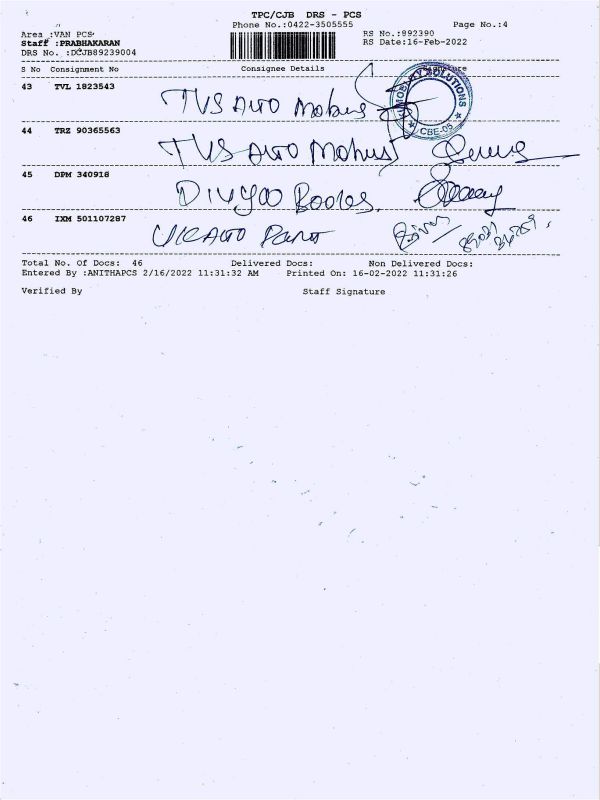 TPC/CJB DRS - PCS
Phone No.:0422-3505555 Page No.:4
Area :VAN PCS RS No.:892390
Staff :PRABHAKARAN RS Date:16-Feb-2022
DRS No. :DCJB89239004
S No Consignment No Consignee Details Signature
43 TVL 1823543 TVS Auto
MOBILITY SOLUTIONS
CBE-05
44 TRZ 90365563 TVS Auto
45 DPM 340918
46 IXM 501107287
Total No. Of Docs: 46 Delivered Docs: Non Delivered Docs:
Entered By :ANITHAPCS 2/16/2022 11:31:32 AM Printed On: 16-02-2022 11:31:26
Verified By Staff Signature